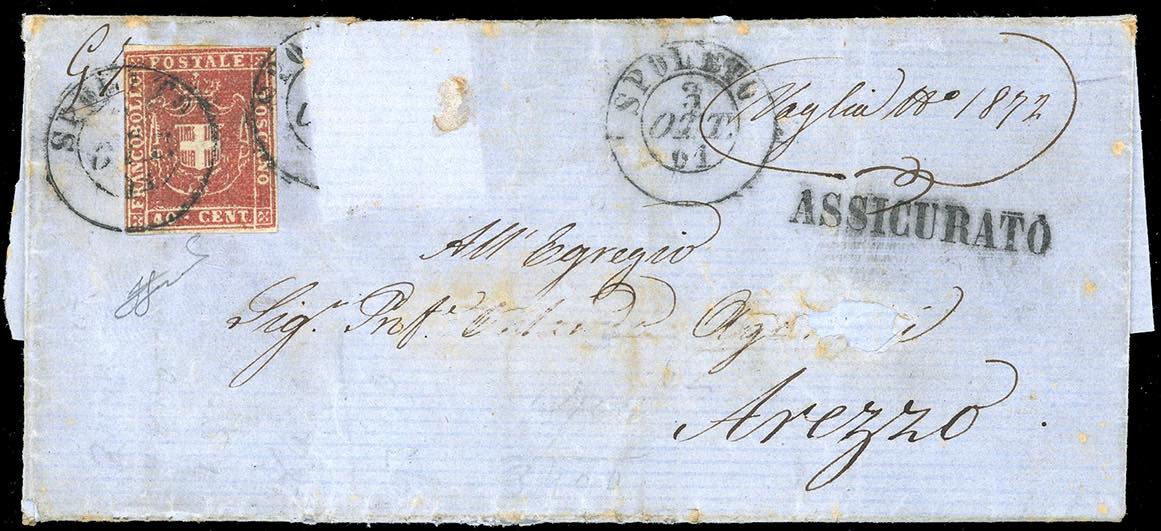 POSTALE
FRANCOBOLLO
TOSCANO
CENT.
SPOLETO
3
OTT.
61
Vaglia No 1872
ASSICURATO
All' Egregio
Sig.r Prof.e
Arezzo